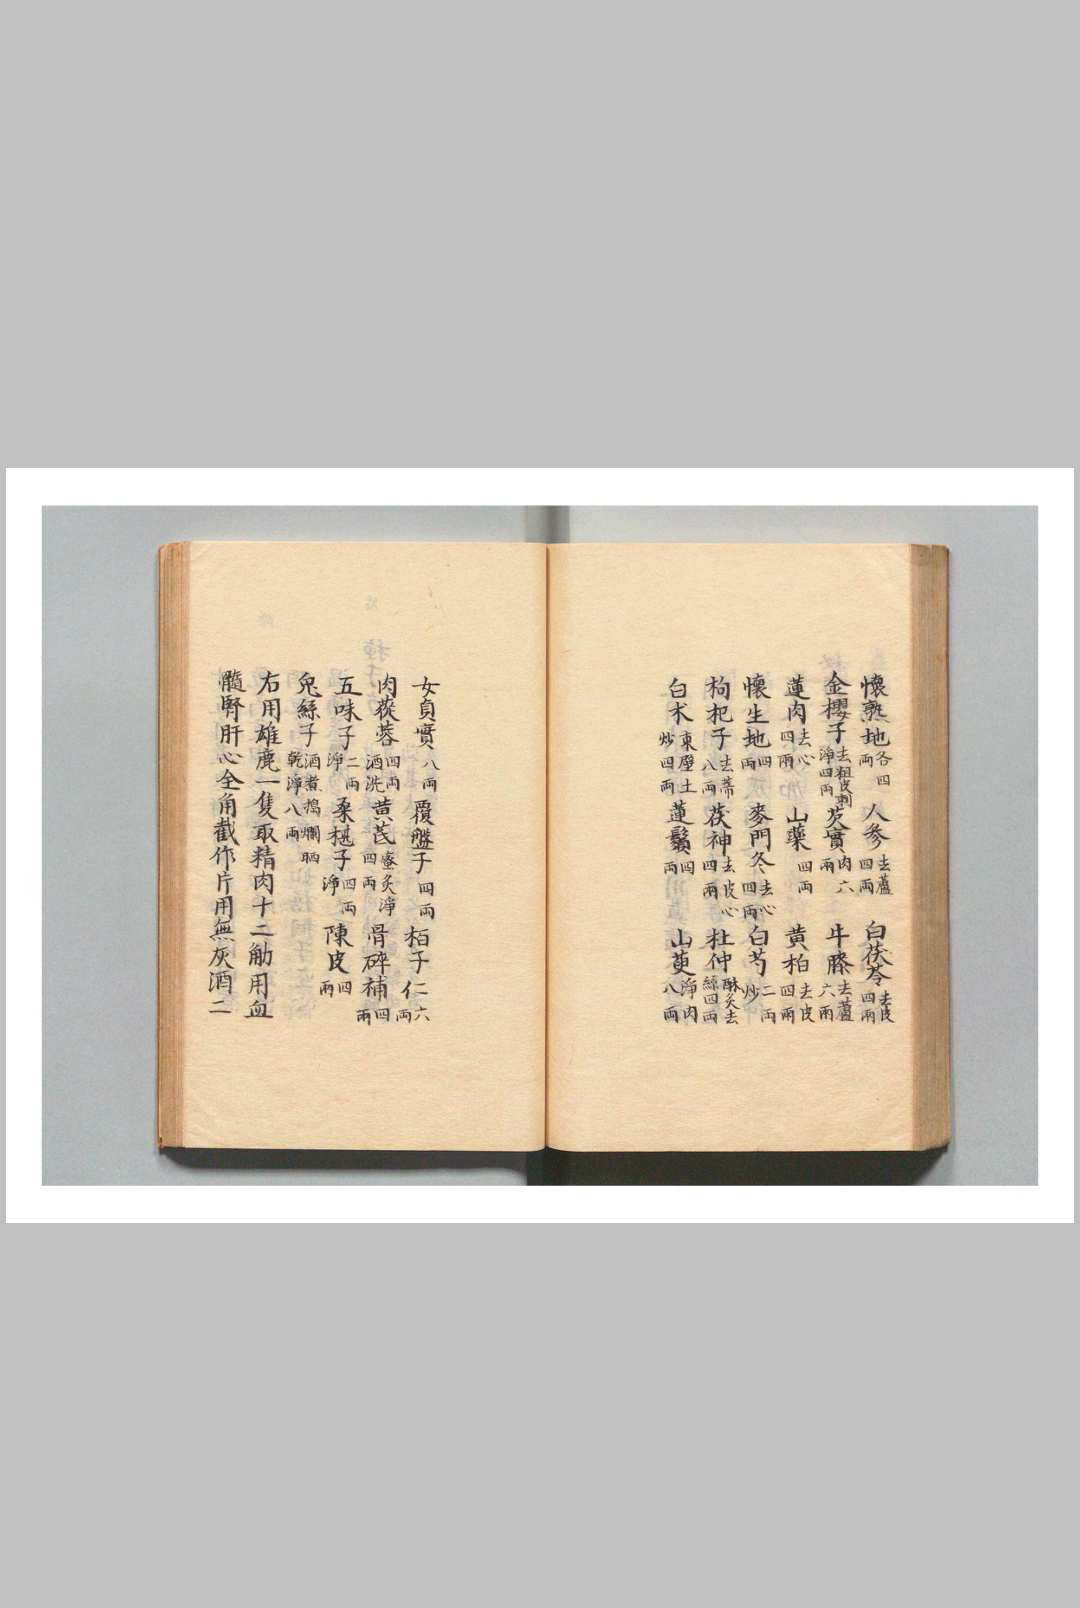 懷熟地各四兩 人參去蘆四兩 白茯苓去皮四兩
金櫻子去粗皮刺淨四兩 芡實肉六兩 牛膝去蘆六兩
蓮肉去心四兩 山藥四兩 黃柏去皮四兩
懷生地四兩 麥門冬去心四兩 白芍二兩炒
枸杞子去蒂八兩 茯神去皮心四兩 杜仲酥炙去絲四兩
白朮東壁土炒四兩 蓮鬚四兩 山萸淨肉八兩
女貞實八兩 覆盤子四兩 栢子仁二六兩
肉蓯蓉四兩酒洗 黃芪蜜炙淨四兩 骨碎補四兩
五味子二兩淨 桑椹子四兩淨 陳皮四兩
兔絲子酒煮搗爛晒乾淨八兩
右用雄鹿一隻取精肉十二觔用血
髓腎肝心全角截作片用無灰酒二